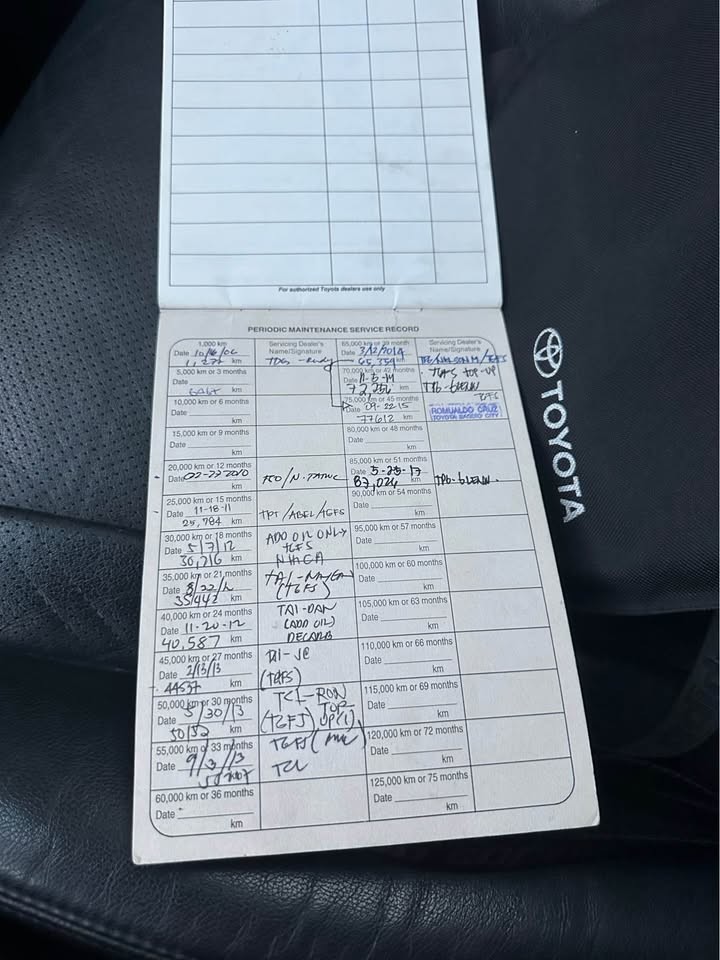 For authorized Toyota dealers use only
PERIODIC MAINTENANCE SERVICE RECORD
1,000 km
Date
km
Servicing Dealer's
Name/Signature
5,000 km or 3 months
Date
km
10,000 km or 6 months
Date
km
15,000 km or 9 months
Date
km
20,000 km or 12 months
Date
km
25,000 km or 15 months
Date 11-18-11
25,784 km
TPT/ABEL/TGFS
30,000 km or 18 months
Date 5/7/12
30,216 km
ADD OIL ONLY
TGFS
35,000 km or 21 months
Date
35,442 km
(TGFS)
40,000 km or 24 months
Date 11-20-12
40,587 km
TAI-DAN
(ADD OIL)
DECARB
45,000 km or 27 months
Date 2/13/13
km
(TGFS)
50,000 km or 30 months
Date 5/30/13
km
TCI-RON
(TGFS) TOP UP (1)
55,000 km or 33 months
Date 9/3/13
km
TGFS
60,000 km or 36 months
Date
km
65,000 km or 39 month
Date 3/2/2014
65,354 km
Servicing Dealer's
Name/Signature
70,000 km or 42 months
Date 11-5-14
km
TGFS TOP-UP
TPB-GLENN
75,000 km or 45 months
Date 09-22-15
77612 km
TGFS
ROMUALDO CRUZ
TOYOTA BAGUIO CITY
80,000 km or 48 months
Date
km
85,000 km or 51 months
Date 5-25-17
87,024 km
TPB-GLENN.
90,000 km or 54 months
Date
km
95,000 km or 57 months
Date
km
100,000 km or 60 months
Date
km
105,000 km or 63 months
Date
km
110,000 km or 66 months
Date
km
115,000 km or 69 months
Date
km
120,000 km or 72 months
Date
km
125,000 km or 75 months
Date
km
TOYOTA